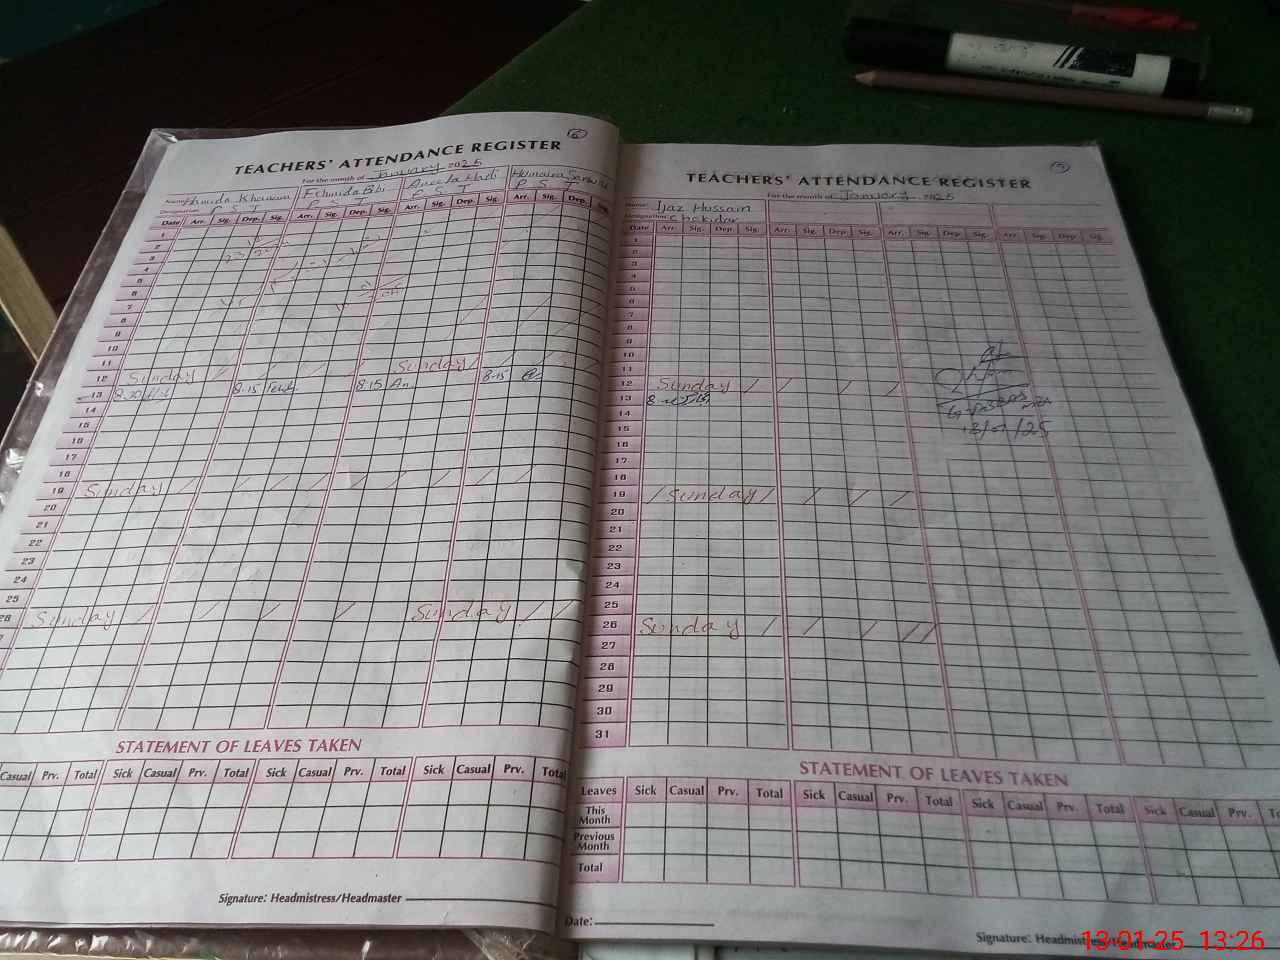 6
TEACHERS' ATTENDANCE REGISTER
For the month of January 2025
Name: Hamida Khanam Fehmida Bibi Aneela Hadi Humaira
Designation: P S T P S T P S T P S T
Date Arr. Sig. Dep. Sig. Arr. Sig. Dep. Sig. Arr. Sig. Dep. Sig. Arr. Sig. Dep. Sig.
1
2
3
4
5
6
7
8
9
10
11
12 Sunday Sunday
13 8.30 8.15 8.15 An 8.15
14
15
16
17
18
19 Sunday
20
21
22
23
24
25
26 Sunday Sunday
STATEMENT OF LEAVES TAKEN
Casual Prv. Total Sick Casual Prv. Total Sick Casual Prv. Total Sick Casual Prv. Total
Signature: Headmistress/Headmaster
TEACHERS' ATTENDANCE REGISTER
For the month of January 2025
Name: Ijaz Hussain
Designation: Chokidar
Date Arr. Sig. Dep. Sig. Arr. Sig. Dep. Sig. Arr. Sig. Dep. Sig. Arr. Sig. Dep. Sig.
1
2
3
4
5
6
7
8
9
10
11
12 Sunday
13
14
15
16
17
18
19 Sunday
20
21
22
23
24
25
26 Sunday
27
28
29
30
31
13/01/25
STATEMENT OF LEAVES TAKEN
Leaves Sick Casual Prv. Total Sick Casual Prv. Total Sick Casual Prv. Total Sick Casual Prv.
This Month
Previous Month
Total
Date:
Signature: Headmistress/Headmaster
13-01-25 13:26